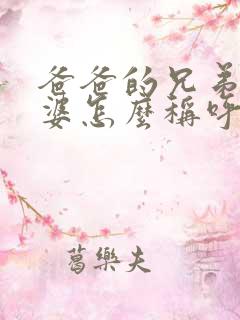 爸爸的兄弟
婆怎麼稱呼
葛樂夫